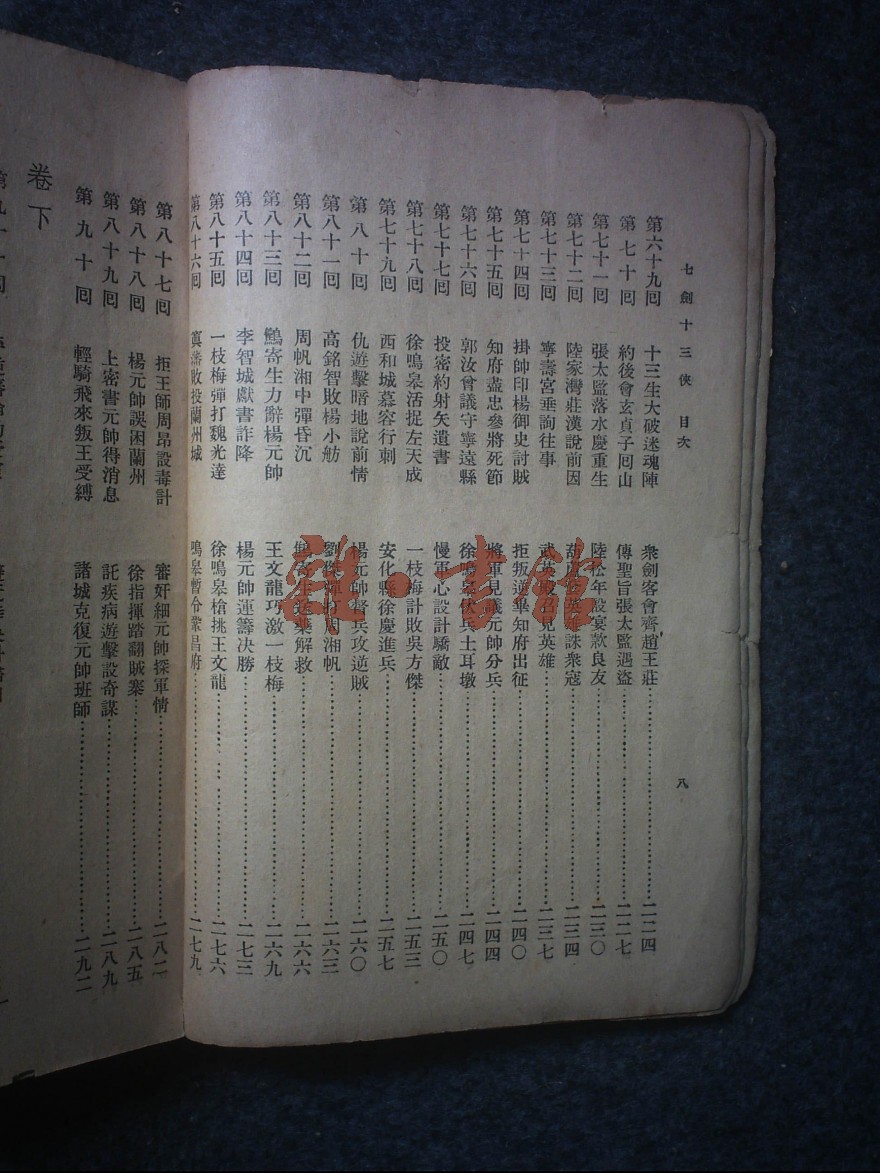 七劍十三俠 目次
八
第六十九囘 十三生大破迷魂陣 衆劍客會齊趙王莊……二二四
第七十囘 約後會玄貞子囘山 傳聖旨張太監遇盜……二二七
第七十一囘 張太監落水慶重生 陸松年設宴款良友……二三〇
第七十二囘 陸家灣莊漢說前因 誅衆寇……二三四
第七十三囘 寧壽宮垂詢往事 武英殿召見英雄……二三七
第七十四囘 掛帥印楊御史討賊 拒叛逆畢知府出征……二四〇
第七十五囘 知府盡忠參將死節 將軍見議元帥分兵……二四四
第七十六囘 郭汝曾議守寧遠縣 徐鳴皋伏兵土耳墩……二四七
第七十七囘 投密約射矢遺書 慢軍心設計驕敵……二五〇
第七十八囘 徐鳴皋活捉左天成 一枝梅計敗吳方傑……二五三
第七十九囘 西和城慕容行刺 安化縣徐慶進兵……二五七
第八十囘 仇遊擊暗地說前情 楊元帥督兵攻逆賊……二六〇
第八十一囘 高銘智敗楊小舫 劉傑彈打周湘帆……二六三
第八十二囘 周帆湘中彈昏沉 鷚寄生送藥解救……二六六
第八十三囘 鷚寄生力辭楊元帥 王文龍巧激一枝梅……二六九
第八十四囘 李智城獻書詐降 楊元帥運籌决勝……二七三
第八十五囘 一枝梅彈打魏光達 徐鳴皋槍挑王文龍……二七六
第八十六囘 寘鐇敗投蘭州城 鳴皋暫令鞏昌府……二七九
第八十七囘 拒王師周昂設毒計 審奸細元帥探軍情……二八二
第八十八囘 楊元帥誤困蘭州 徐指揮踏翻賊寨……二八五
第八十九囘 上密書元帥得消息 託疾病遊擊設奇謀……二八九
第九十囘 輕騎飛來叛王受縛 諸城克復元帥班師……二九二
卷下
雜·書館